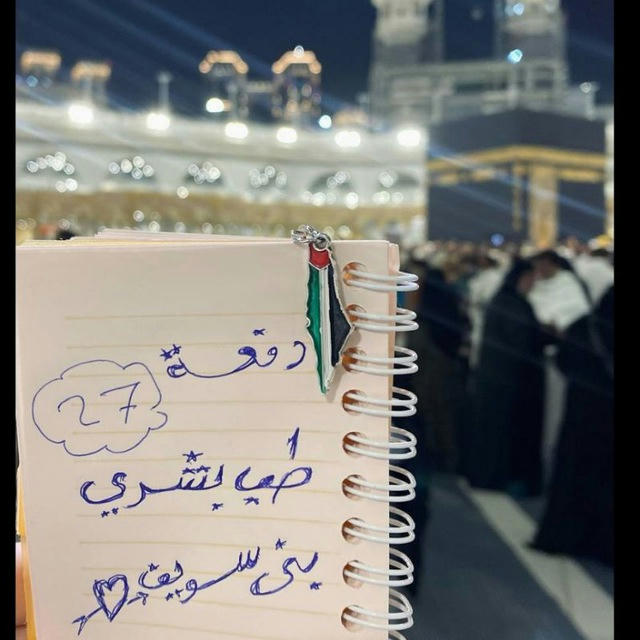 دفعة 27
طب بشري
بنى سويف